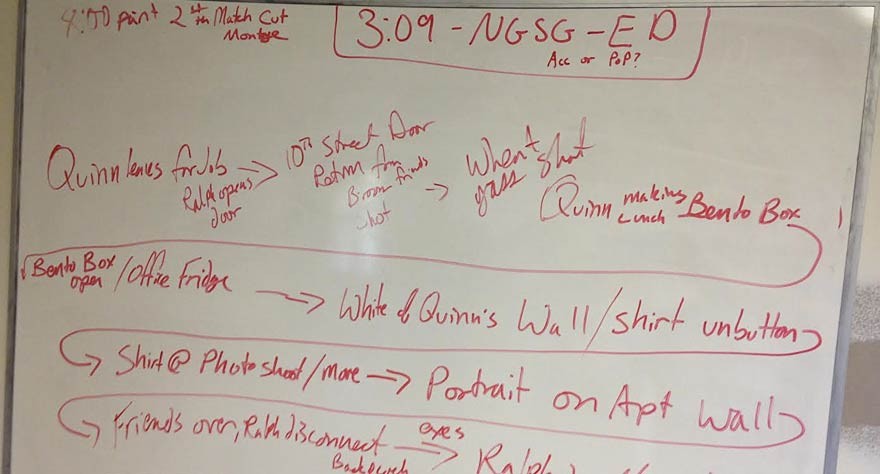 point 2 Match Cut
Montge
3:09 - NGSG - ED
Acc or PoP?
Quinn leaves for Job → 10th Street Door
Ralph opens
door
Return from
friends
shot
→ shot
Quinn making
Lunch Bento Box
Bento Box
open / Office Fridge → White of Quinn's Wall / shirt unbutton
→ Shirt @ Photo shoot / more → Portrait on Apt Wall
→ Friends over, Ralph disconnect eyes → Ralph